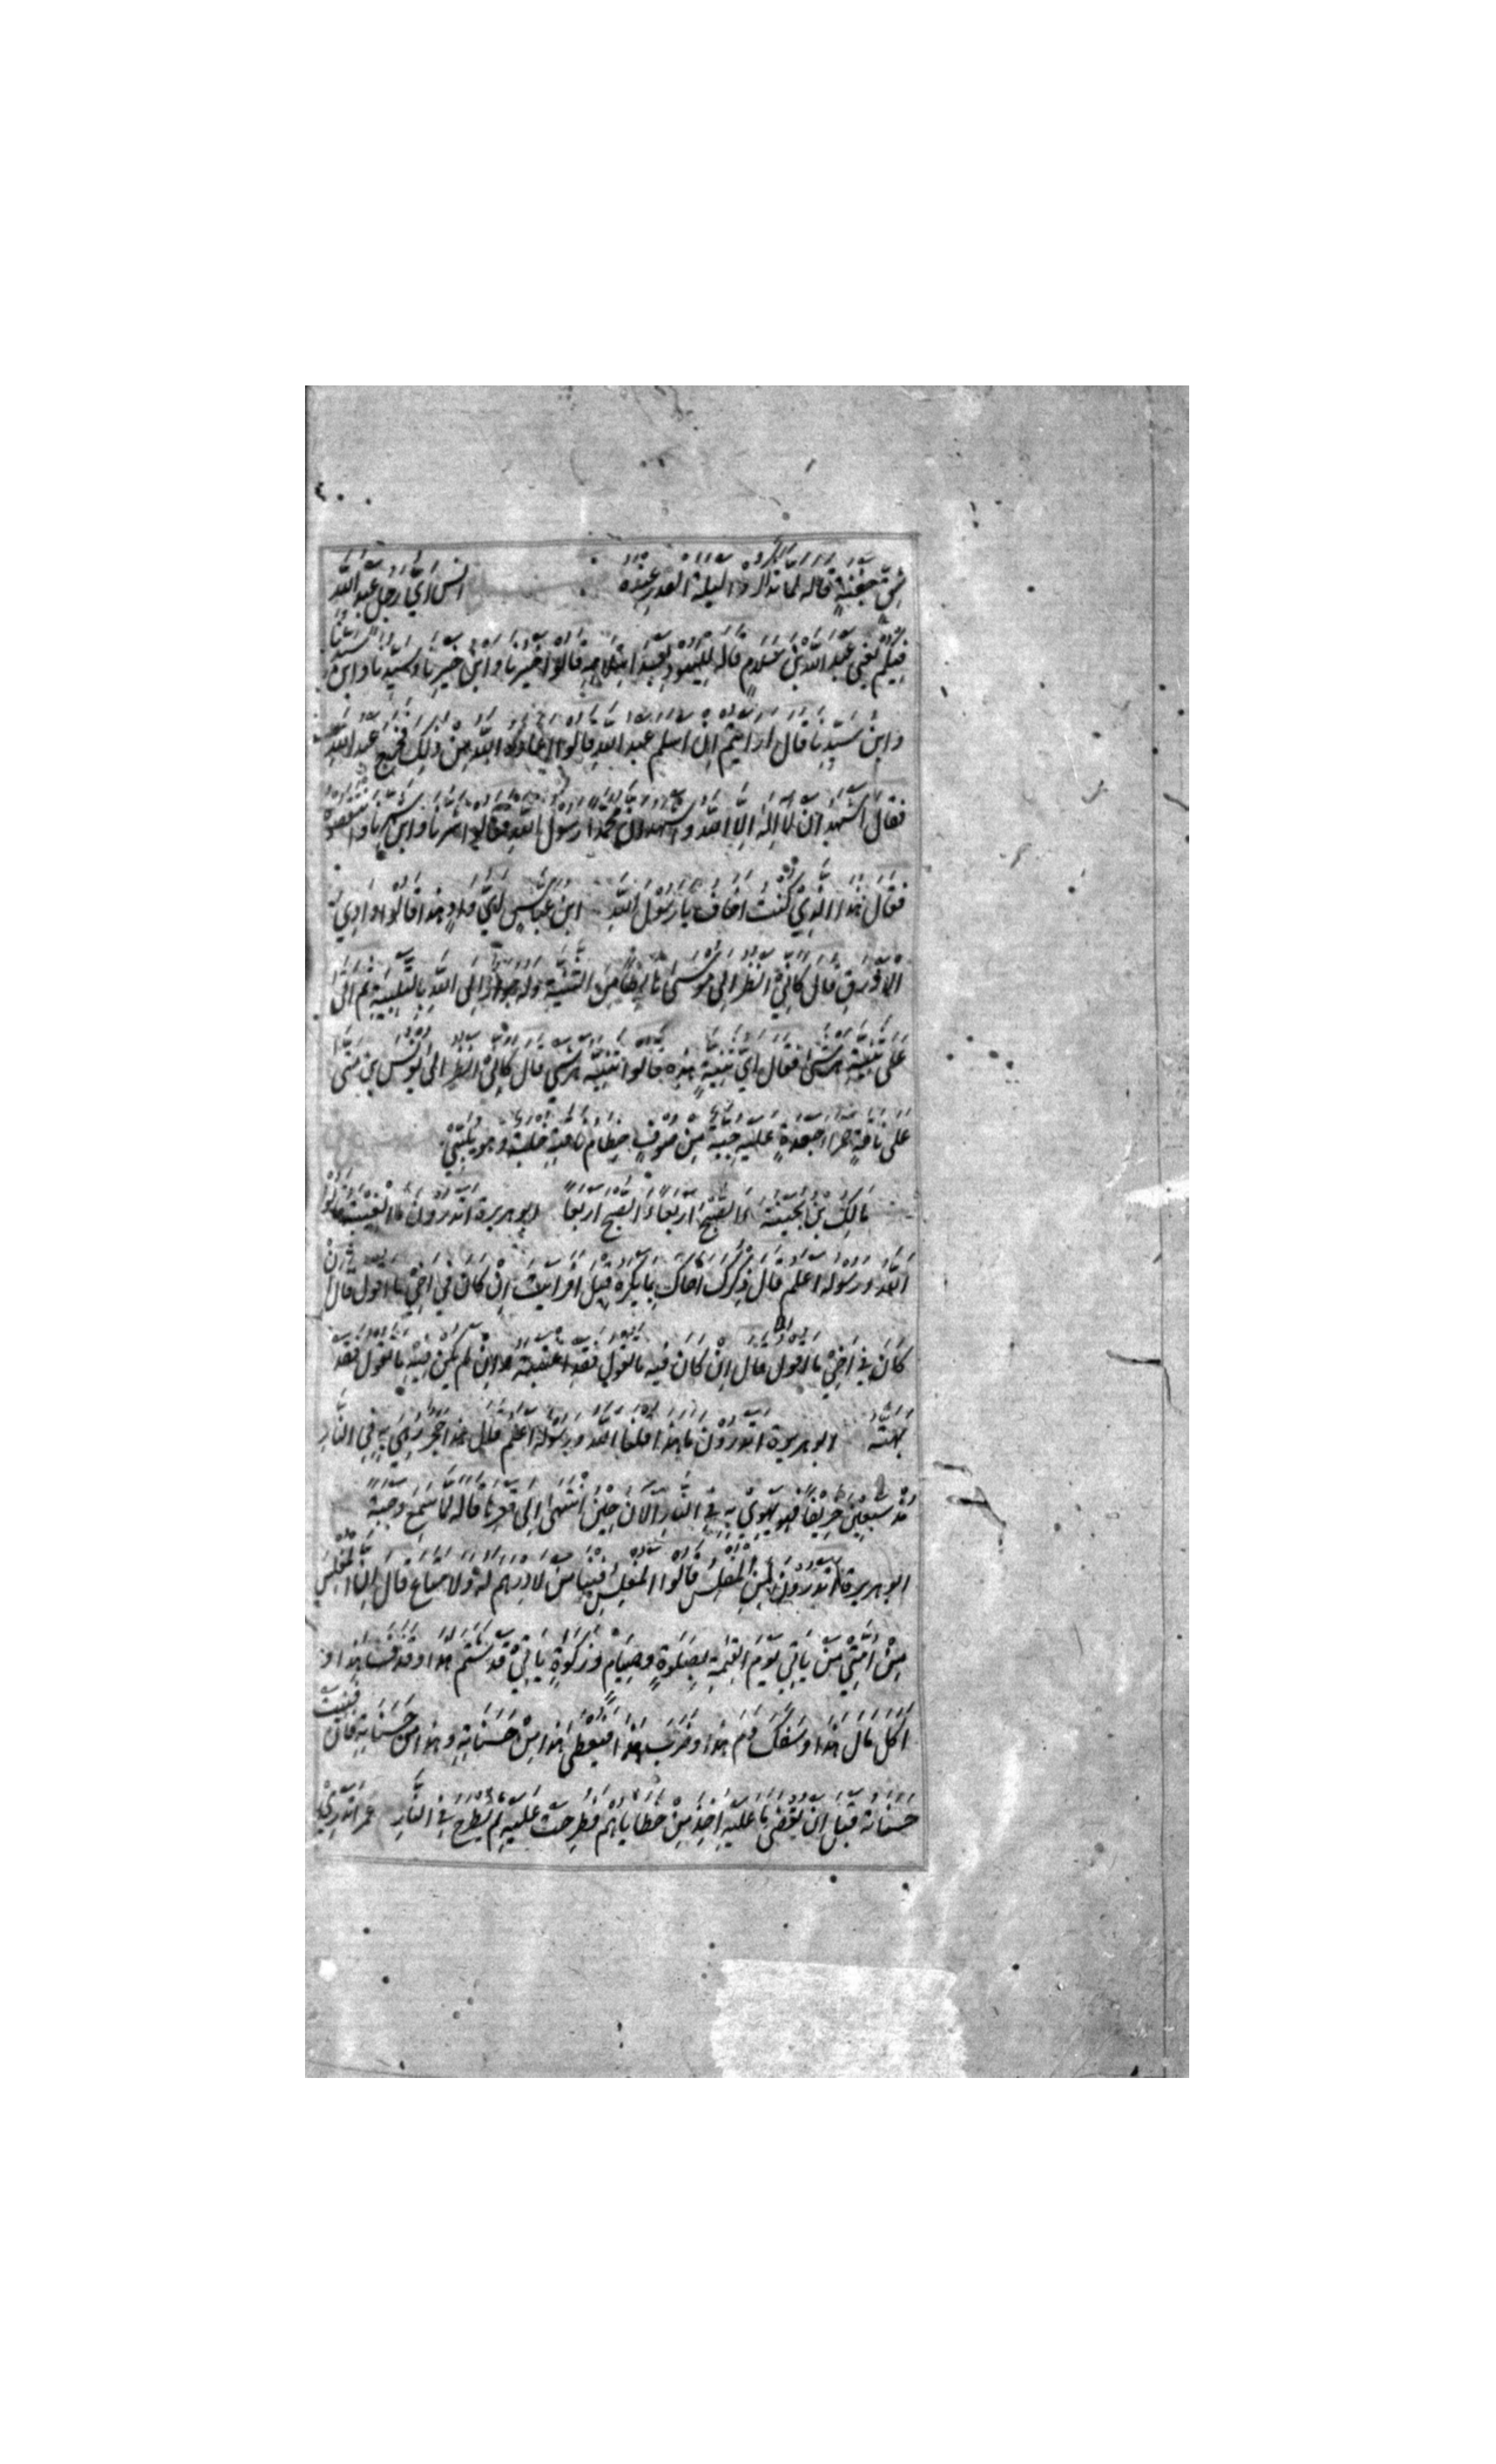 شِقِّ جَفْنَةٍ قاله لما تذاكروا ليلة القدر عنده انس اَيُّ رَجُلٍ عَبْدُ اللّٰهِ
فِيكُمْ يعني عبد الله بن سلام قاله لليهود قالوا خيرنا وابن خيرنا وسيدنا وابن
وابن سيدنا قال ارايتم ان اسلم عبد الله قالوا اعاذه الله من ذلك فخرج عبد الله
فقال اشهد ان لا اله الا الله واشهد ان محمدا رسول الله فقالوا شرنا وابن شرنا وانتقصوه
فقال هذا الذي كنت اخاف يا رسول الله ابن عباس اي واد هذا قالوا وادي
الازرق قال كاني انظر الى موسى هابطا من الثنية وله جؤار الى الله بالتلبية ثم اتى
على ثنية هرشى فقال اي ثنية هذه قالوا ثنية هرشى قال كاني انظر الى يونس بن متى
على ناقة حمراء جعدة عليه جبة من صوف خطام ناقته خلبة وهو يلبي
مالك بن بحينة الصبح اربعا الصبح اربعا ابو هريرة اتدرون ما الغيبة قالوا
الله ورسوله اعلم قال ذكرك اخاك بما يكره قيل افرايت ان كان في اخي ما اقول قال
كان في اخي ما اقول قال ان كان فيه ما تقول فقد اغتبته وان لم يكن فيه ما تقول فقد
بهته ابو هريرة اتدرون ما هذا قلنا الله ورسوله اعلم قال هذا حجر رمي به في النار
منذ سبعين خريفا فهو يهوي به في النار الان حين انتهى الى قعرها قاله لما سمع وجبة
ابو هريرة اتدرون من المفلس قالوا المفلس فينا من لا درهم له ولا متاع قال ان المفلس
من امتي من ياتي يوم القيمة بصلوة وصيام وزكوة ياتي قد شتم هذا وقذف هذا و
اكل مال هذا وسفك دم هذا وضرب هذا فيعطى هذا من حسناته وهذا من حسناته فان فنيت
حسناته قبل ان يقضى ما عليه اخذ من خطاياهم فطرحت عليه ثم يطرح في النار عمر اتدري